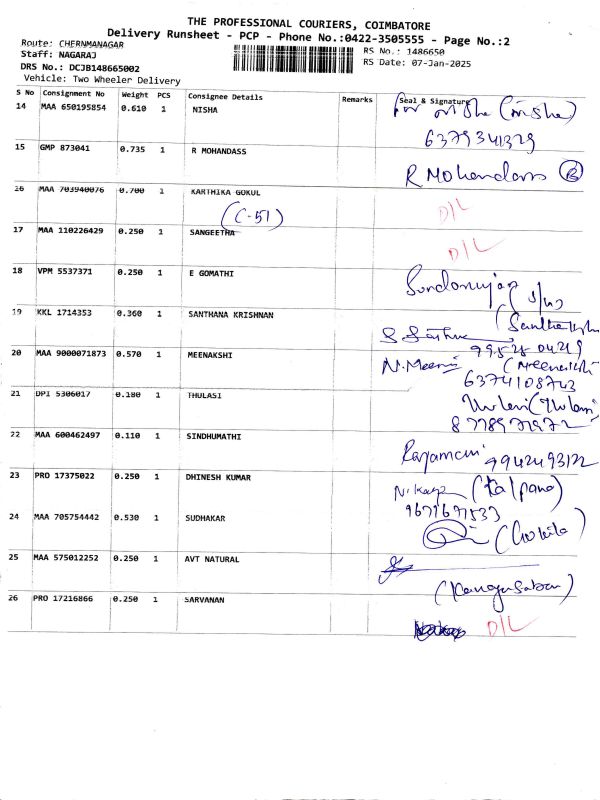 THE PROFESSIONAL COURIERS, COIMBATORE
Delivery Runsheet - PCP - Phone No.:0422-3505555 - Page No.:2
Route: CHERNMANAGAR
Staff: NAGARAJ
DRS No.: DCJB148665002
Vehicle: Two Wheeler Delivery
RS No.: 1486650
RS Date: 07-Jan-2025
S No Consignment No Weight PCS Consignee Details Remarks Seal & Signature
14 MAA 650195854 0.610 1 NISHA for Nisha (Nisha)
6379341329
15 GMP 873041 0.735 1 R MOHANDASS
R Mohandass
16 MAA 703940076 0.700 1 KARTHIKA GOKUL
(C-51) D/L
17 MAA 110226429 0.250 1 SANGEETHA
D/L
18 VPM 5537371 0.250 1 E GOMATHI
19 KKL 1714353 0.360 1 SANTHANA KRISHNAN
20 MAA 9000071873 0.570 1 MEENAKSHI N.Meena (Meenakshi
6374108743
21 DPI 5306017 0.180 1 THULASI
8778971972
22 MAA 600462497 0.110 1 SINDHUMATHI
Rajamani 9942493122
23 PRO 17375022 0.250 1 DHINESH KUMAR (Kalpana)
9671671533
24 MAA 705754442 0.530 1 SUDHAKAR (Kokila)
25 MAA 575012252 0.250 1 AVT NATURAL
(Kanagasabai)
26 PRO 17216866 0.250 1 SARVANAN
D/L